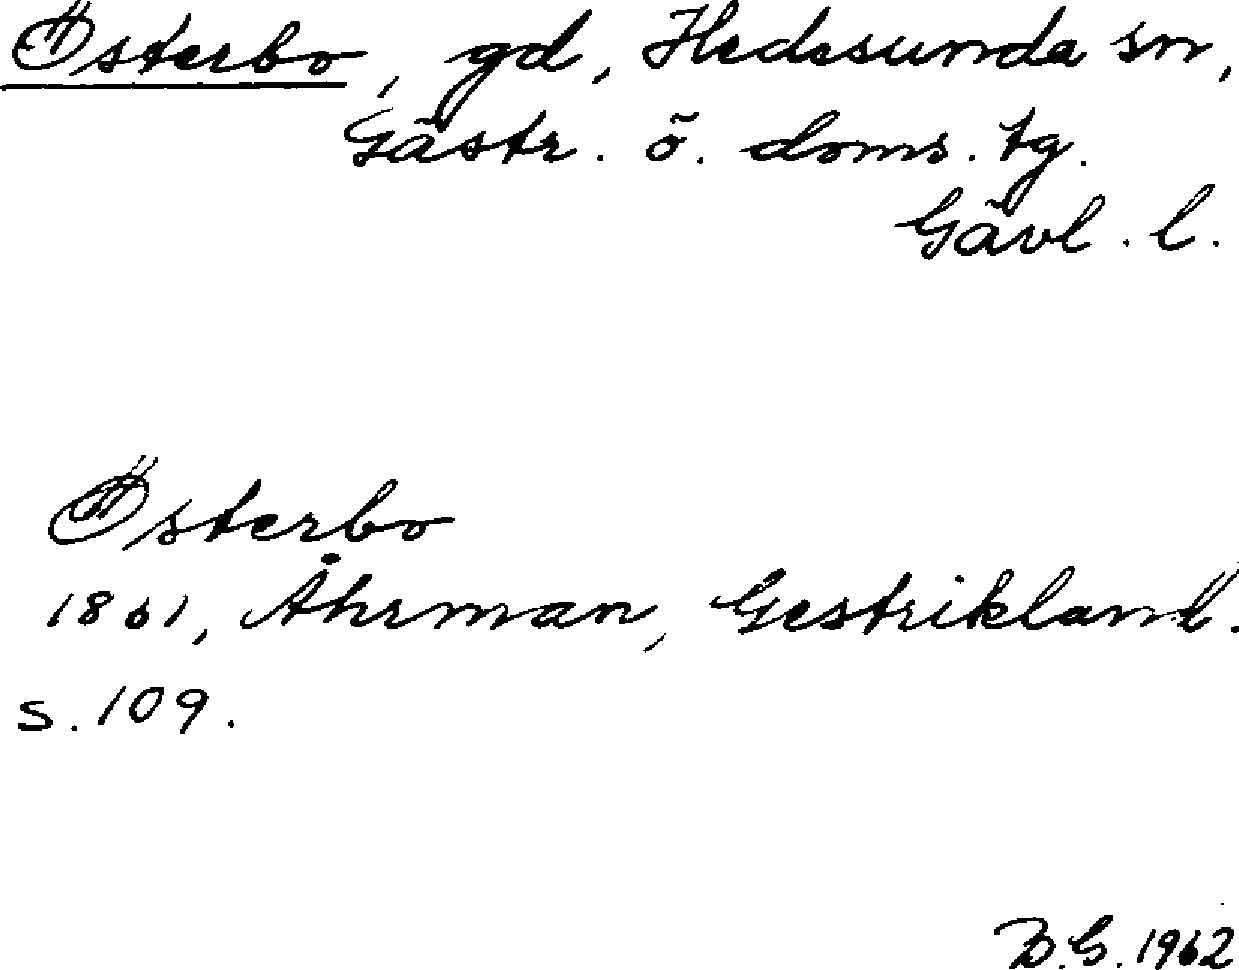 Österbo, gd, Hedesunda sn,
Gästr. ö. doms. tg.
Gävl. l.
Österbo
1861, Åhrman, Gestrikland.
s. 109.
B.G. 1962